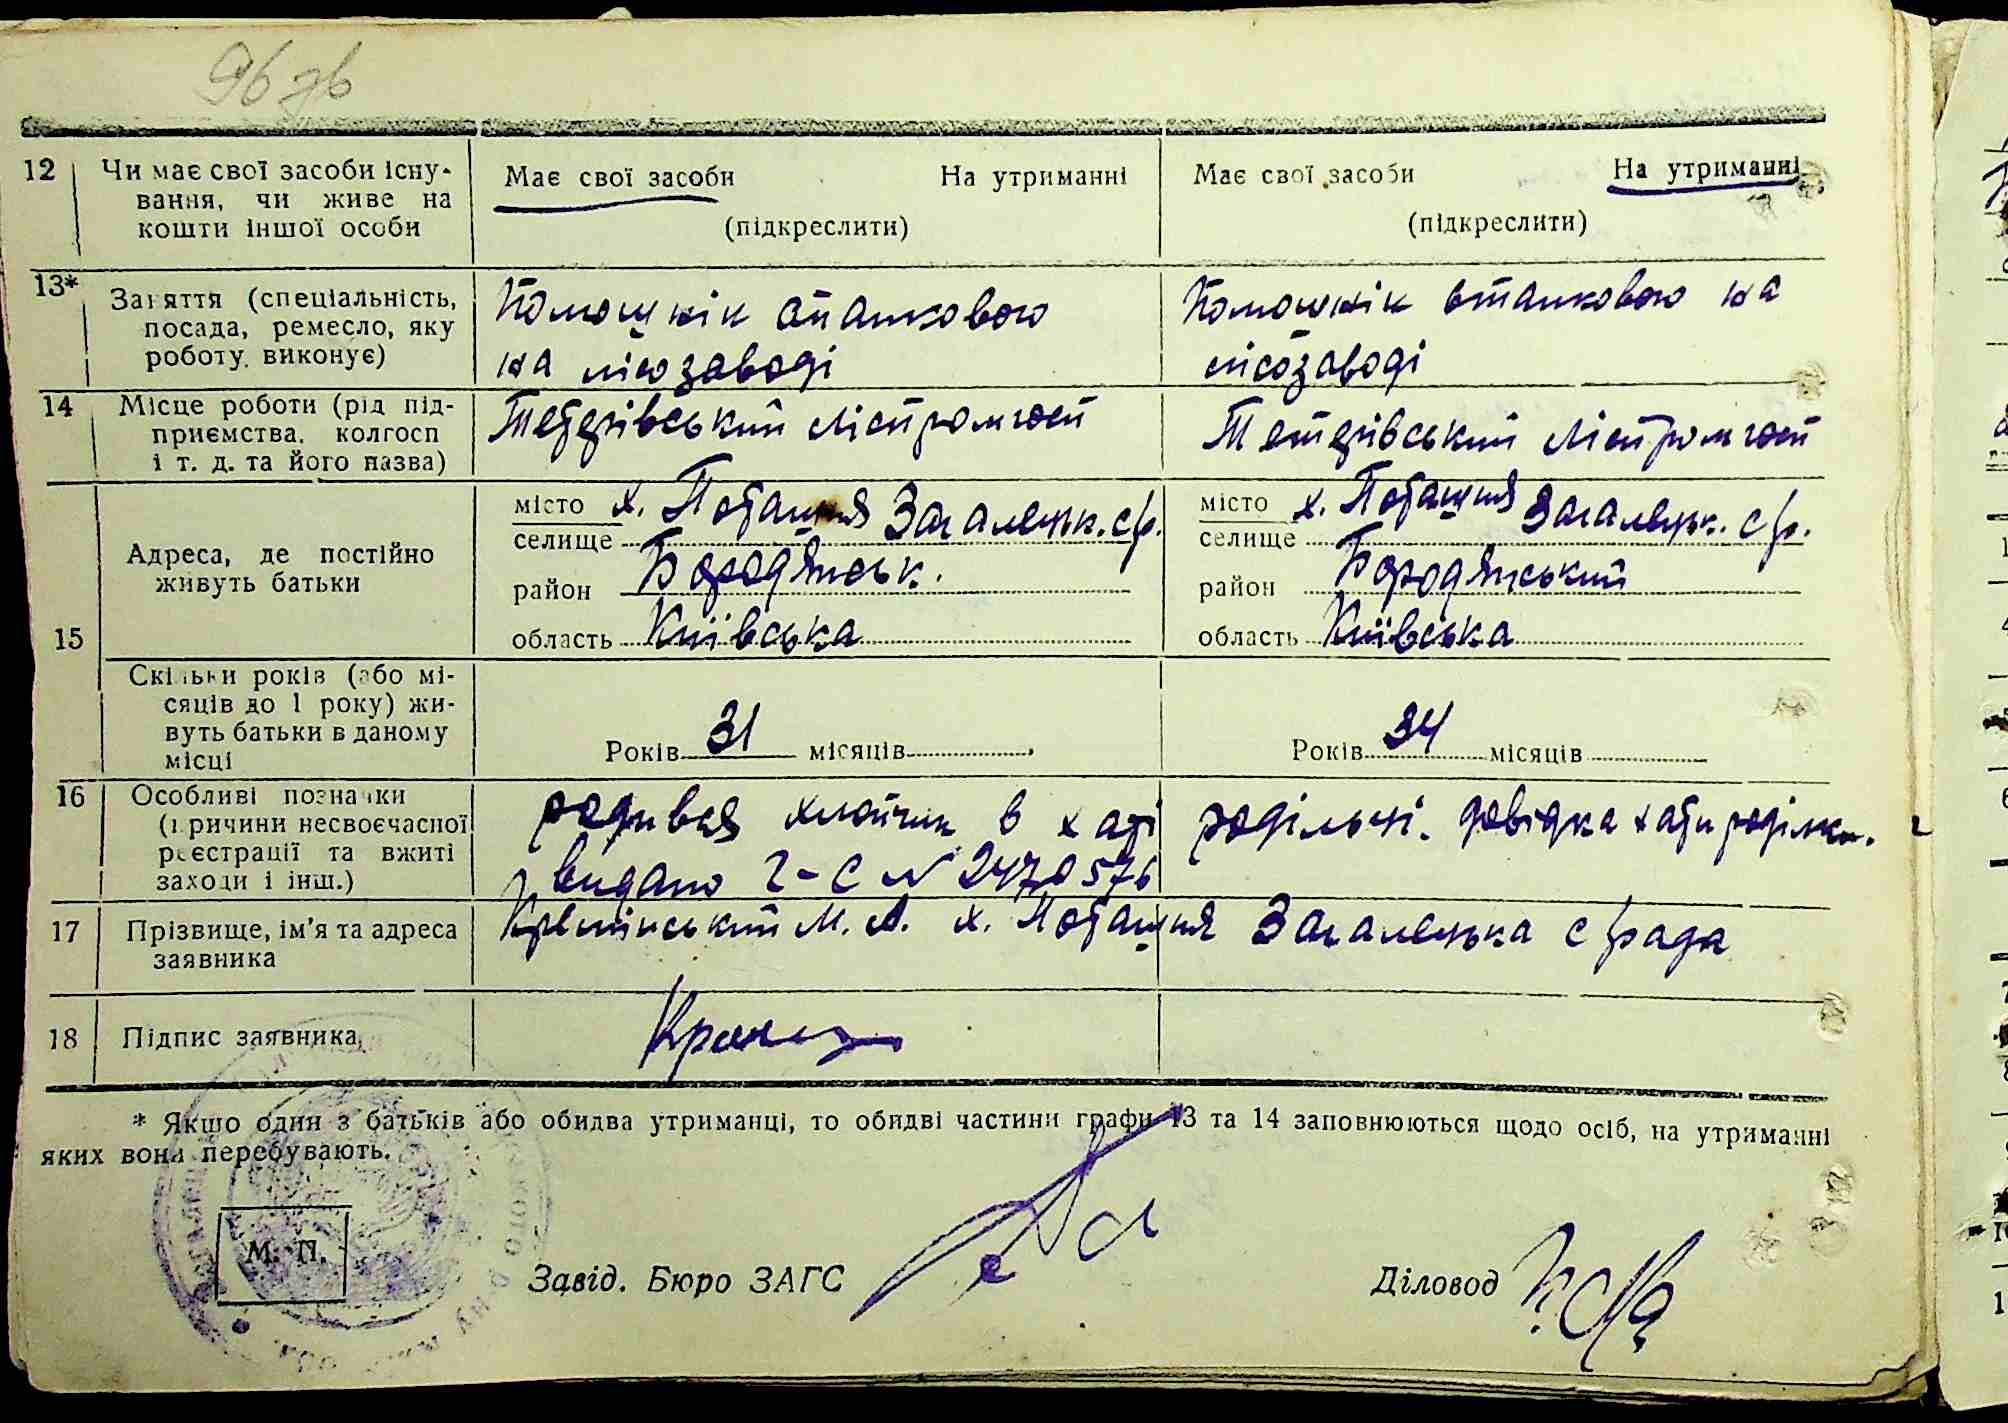 96 зв
12 Чи має свої засоби існу-
вання, чи живе на
кошти іншої особи
Має свої засоби На утриманні
(підкреслити)
Має свої засоби На утриманні
(підкреслити)
13* Заняття (спеціальність,
посада, ремесло, яку
роботу виконує)
Помошнік станкового
на лісозаводі
Помошнік станкового на
лісозаводі
14 Місце роботи (рід під-
приємства, колгосп
і т. д. та його назва)
Тетерівський ліспромгосп
Тетерівський ліспромгосп
15 Адреса, де постійно
живуть батьки
місто х. Поташня Загаленьк. с/р.
селище
район Бородянськ.
область Київська
місто х. Поташня Загаленьк. с/р.
селище
район Бородянський
область Київська
Скільки років (або мі-
сяців до 1 року) жи-
вуть батьки в даному
місці
Років 31 місяців
Років 34 місяців
16 Особливі позначки
(причини несвоєчасної
реєстрації та вжиті
заходи і інш.)
родився хлопчик в хаті родільні. довідка хати роділки.
видано 2-С № 2470576
17 Прізвище, ім'я та адреса
заявника
М. А. х. Поташня Загаленька с/рада
18 Підпис заявника
* Якшо один з батьків або обидва утриманці, то обидві частини графи 13 та 14 заповнюються щодо осіб, на утриманні
яких вони перебувають.
М. П.
Завід. Бюро ЗАГС
Діловод